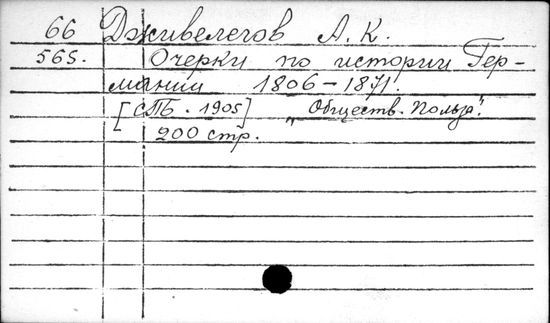 66 Дживелегов А. К.
565. Очерки по истории Гер-
мании 1806-1871.
[СПБ. 1905] „Обществ. Польза".
200 стр.